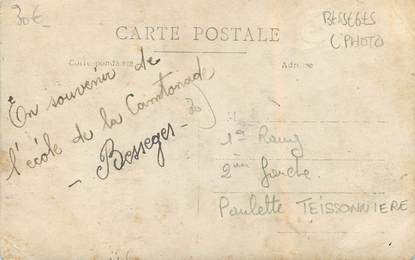 30€
BESSEGES
CPHOTO
CARTE POSTALE
Correspondance
Adresse
En souvenir de
l'école de la Cantonade
- Besseges -
M
1er Rang
2ème gauche.
Paulette TEISSONNIERE